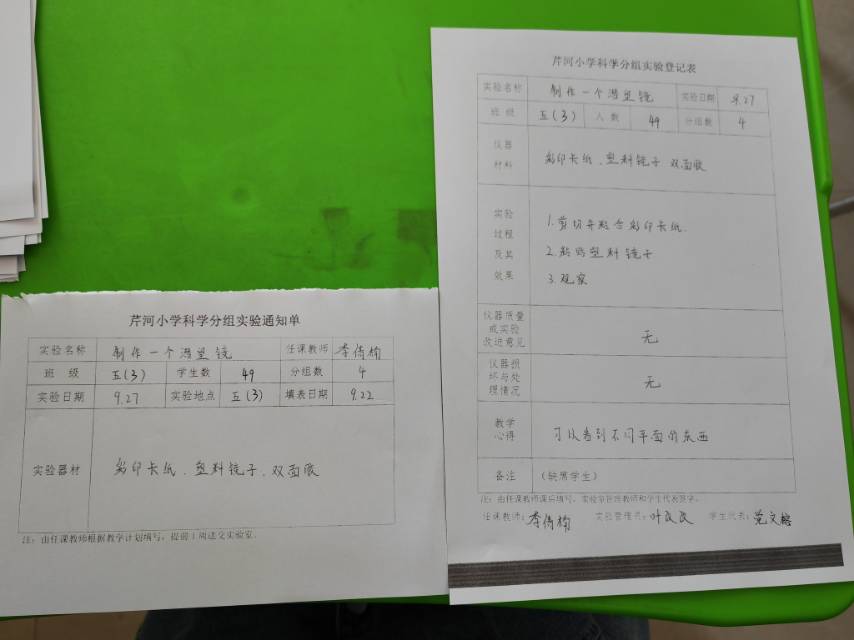 芹河小学科学分组实验通知单
实验名称 制作一个潜望镜 任课教师 李倩楠
班 级 五(3) 学生数 49 分组数 4
实验日期 9.27 实验地点 五(3) 填表日期 9.22
实验器材 彩印卡纸、塑料镜子、双面胶
注：由任课教师根据教学计划填写，提前1周送交实验室。
芹河小学科学分组实验登记表
实验名称 制作一个潜望镜 实验日期 9.27
班 级 五(3) 人 数 49 分组数 4
仪器
材料
彩印卡纸、塑料镜子 双面胶
实验
过程
及其
效果
1.剪切并粘合彩印卡纸.
2.粘贴塑料镜子
3.观察
仪器质量
或实验
改进意见
无
仪器损
坏与处
理情况
无
教学
心得
可以看到不同平面的东西
备注 (缺席学生)
注：由任课教师课后填写，实验室管理教师和学生代表签字。
任课教师：李倩楠 实验管理员：叶 学生代表：党文